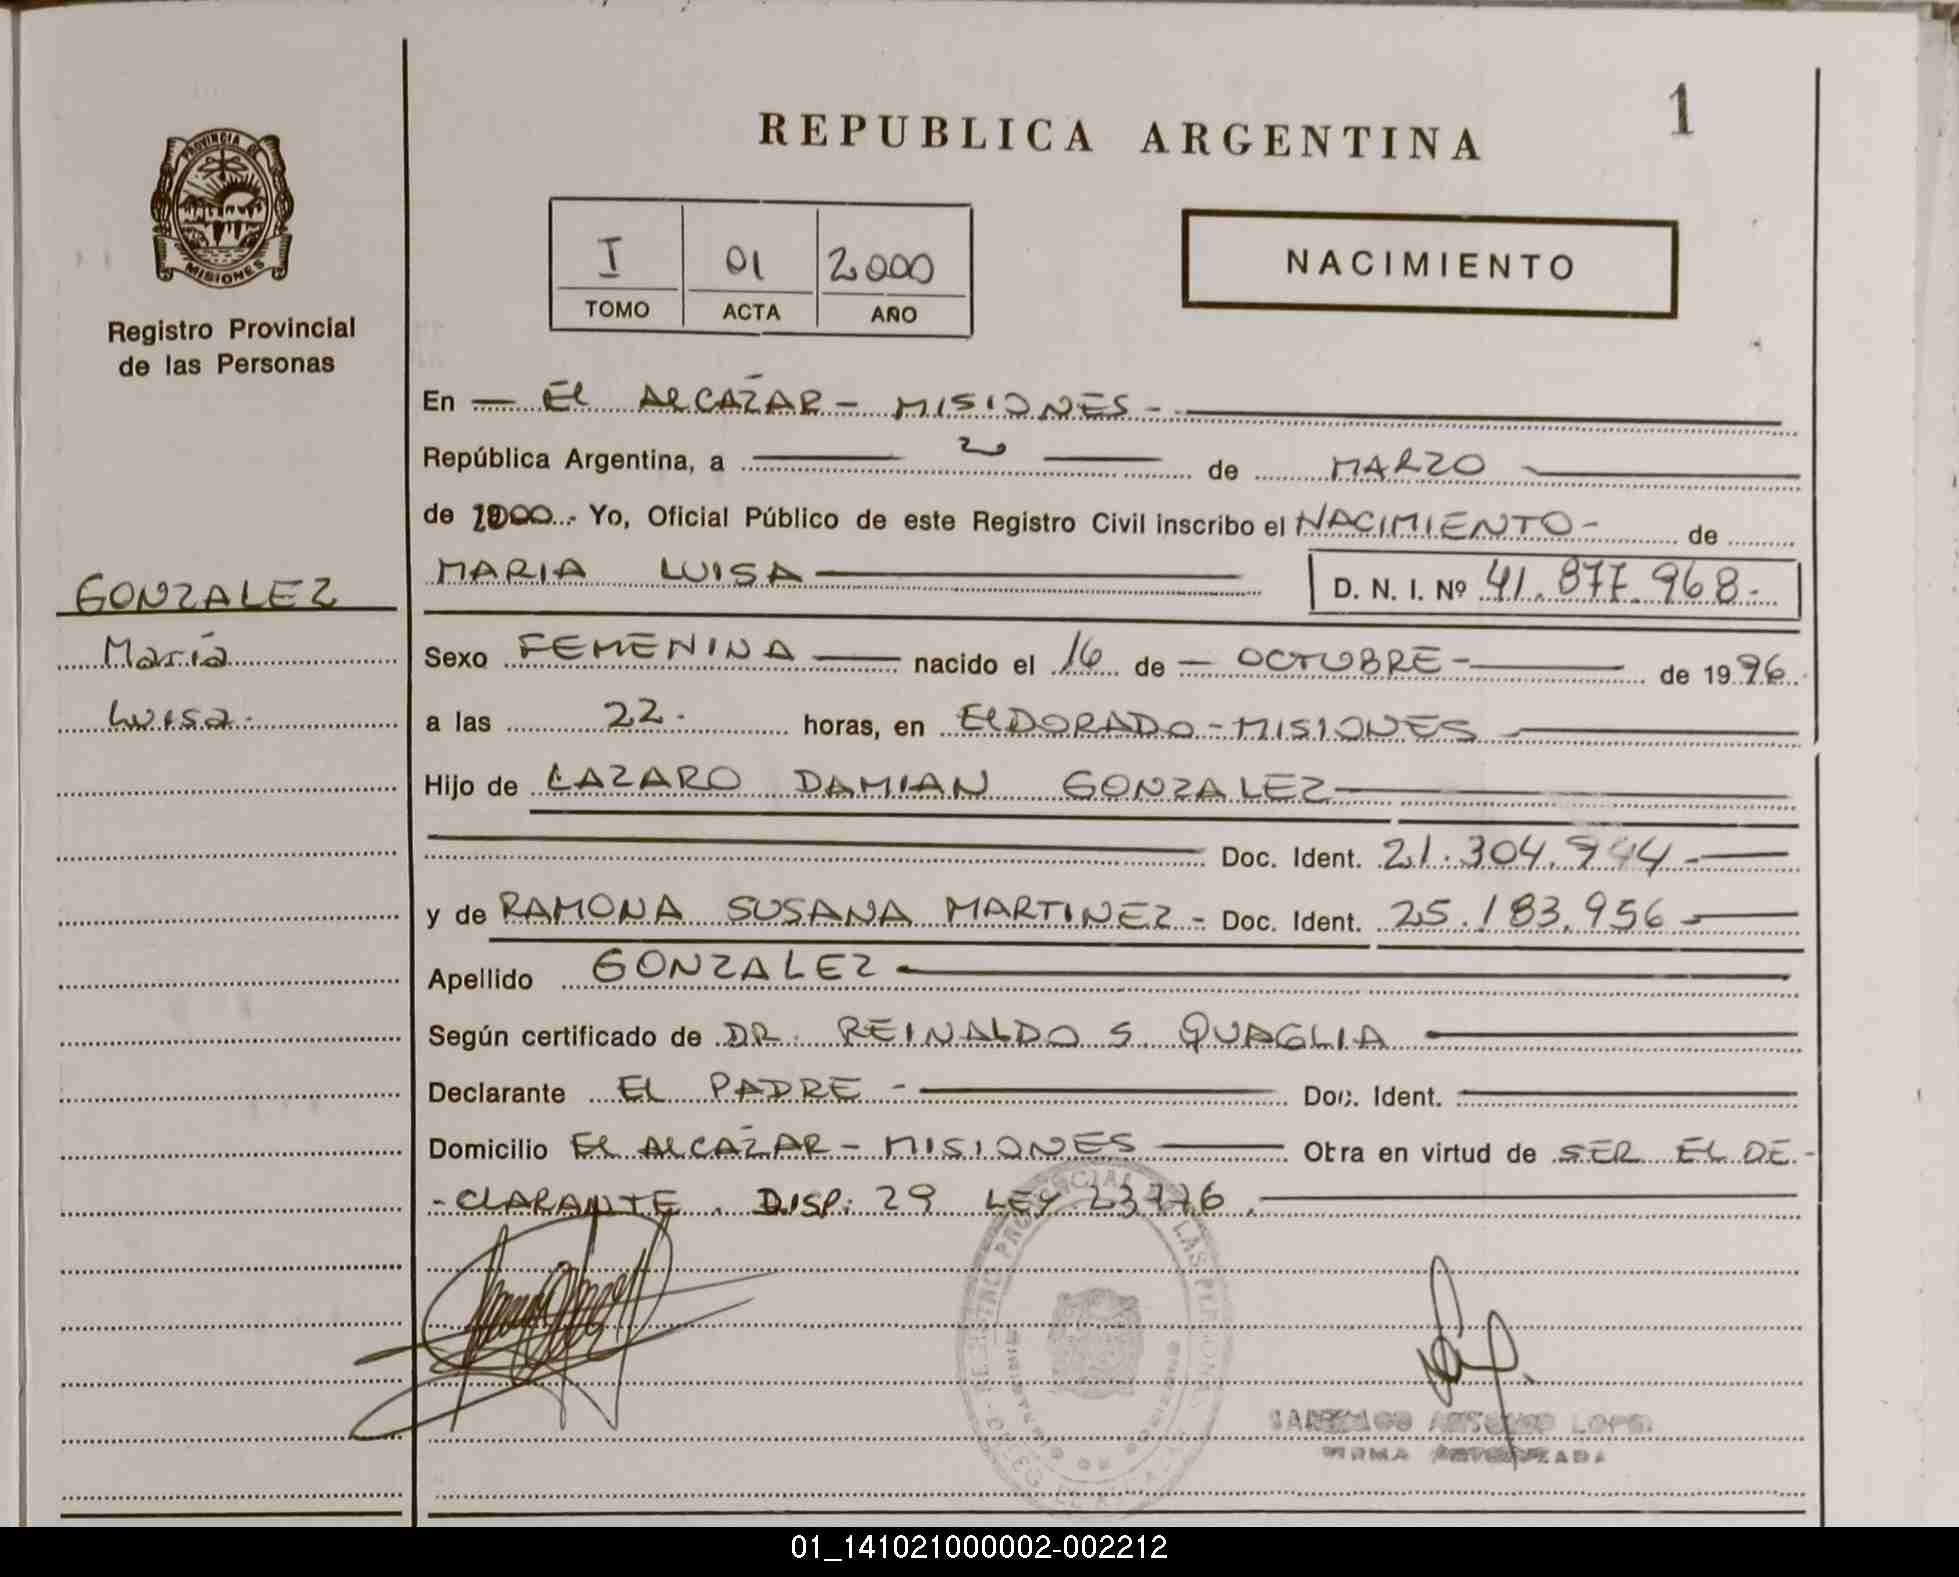 REPUBLICA ARGENTINA
1
PROVINCIA DE
MISIONES
Registro Provincial
de las Personas
I 01 2000
TOMO ACTA AÑO
NACIMIENTO
En EL ALCAZAR - MISIONES -
República Argentina, a 2 de MARZO
de 2000 Yo, Oficial Público de este Registro Civil inscribo el NACIMIENTO - de
MARIA LUISA D. N. I. Nº 41.877.968.-
GONZALEZ
María
Luisa.
Sexo FEMENINA nacido el 16 de OCTUBRE - de 1996
a las 22. horas, en ELDORADO - MISIONES
Hijo de LAZARO DAMIAN GONZALEZ
Doc. Ident. 21.304.944 -
y de RAMONA SUSANA MARTINEZ - Doc. Ident. 25.183.956 -
Apellido GONZALEZ
Según certificado de DR. REINALDO S. QUAGLIA
Declarante EL PADRE - Doc. Ident.
Domicilio EL ALCAZAR - MISIONES Obra en virtud de SER EL DE-
- CLARANTE. DISP: 29 LEY 23776.
FIRMA AUTORIZADA
01_141021000002-002212